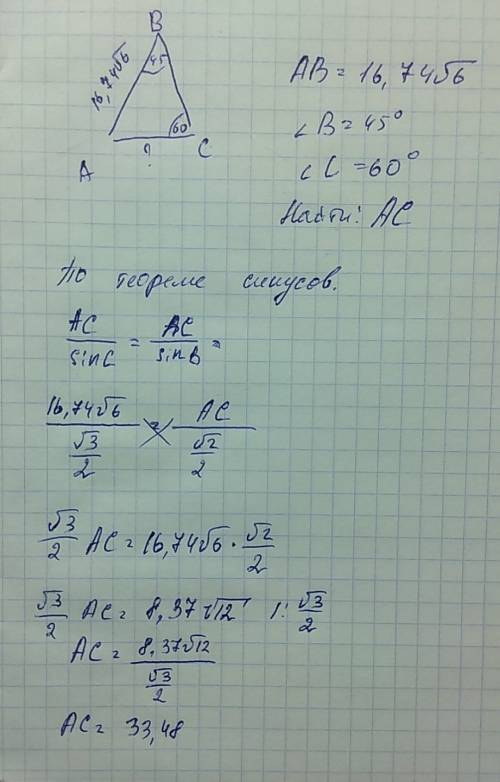 B
16,74√6
45
60
A
?
C
AB = 16,74√6
∠B = 45°
∠C = 60°
Найти: AC
По теореме синусов.
AC/sinC = AC/sinB =
16,74√6/(√3/2) = AC/(√2/2)
√3/2 AC = 16,74√6 · √2/2
√3/2 AC = 8,37√12 |: √3/2
AC = 8,37√12/(√3/2)
AC = 33,48